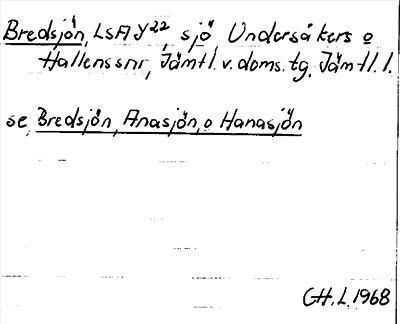 Bredsjön, LSA Y22, sjö Undersåkers o
Hallens snr, Jämtl. v. doms. tg, Jämtl. l.
se, Bredsjön, Anasjön, o Hanasjön
GH. L. 1968